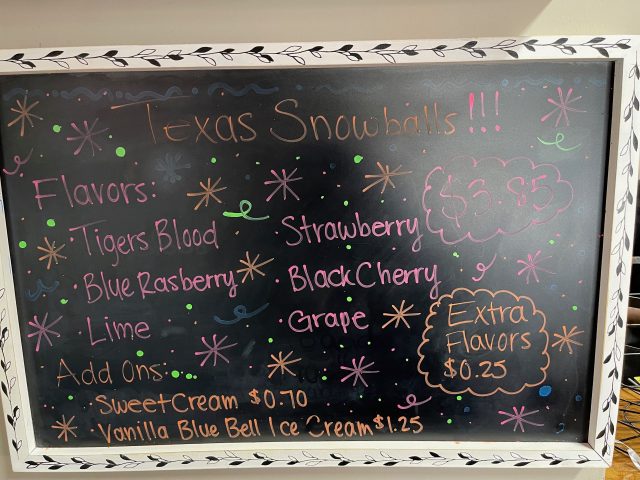 Texas Snowballs!!!
Flavors:
$3.85
· Tigers Blood
· Strawberry
· Blue Rasberry
· Black Cherry
· Lime
· Grape
Extra
Flavors
$0.25
Add Ons:
· Sweet Cream $0.70
· Vanilla Blue Bell Ice Cream $1.25